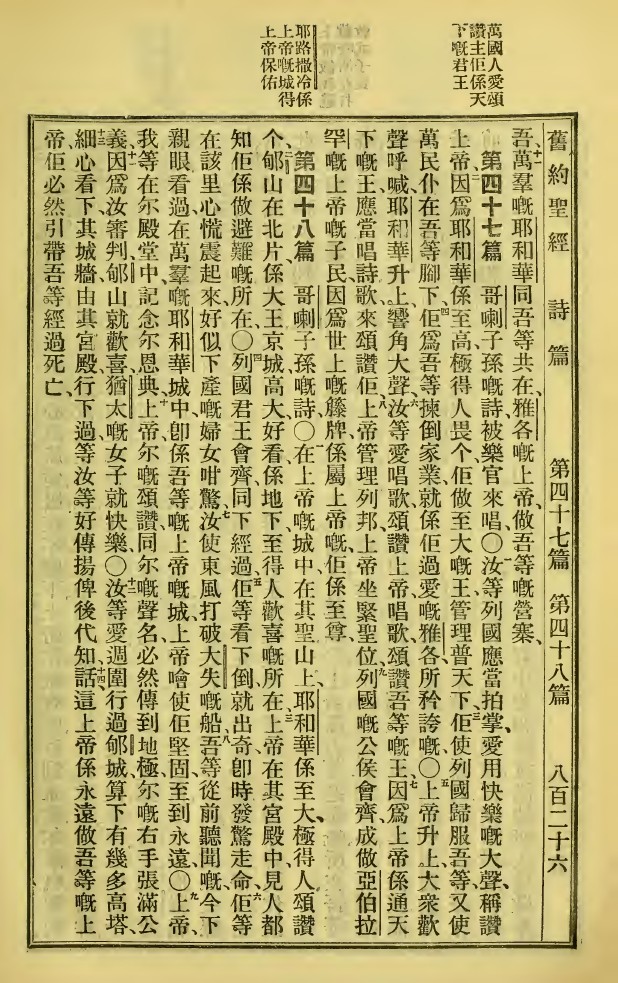 萬國人愛頌
讚主佢係天
下嘅君王
耶路撒冷係
上帝嘅城得
上帝保佑
舊約聖經 詩篇 第四十七篇 第四十八篇 八百二十六
十一吾萬羣嘅耶和華同吾等共在、雅各嘅上帝、做吾等嘅營寨、
第四十七篇 哥喇子孫嘅詩被樂官來唱〇一汝等列國應當拍掌、愛用快樂嘅大聲、稱讚
上帝、二因爲耶和華係至高極得人畏个、佢做至大嘅王管理普天下、三佢使列國歸服吾等、又使
萬民仆在吾等腳下、四佢爲吾等揀倒家業、就係佢過愛嘅雅各所矜誇嘅〇五上帝升上、大衆歡
聲呼喊、耶和華升上、響角大聲、六汝等愛唱歌頌讚上帝、唱歌、頌讚吾等嘅王、七因爲上帝係通天
下嘅王、應當唱詩歌來頌讚佢、八上帝管理列邦、上帝坐緊聖位、九列國嘅公侯會齊、成做亞伯拉
罕嘅上帝嘅子民、因爲世上嘅籐牌、係屬上帝嘅、佢係至尊、
第四十八篇 哥喇子孫嘅詩〇一在上帝嘅城中、在其聖山上、耶和華係至大、極得人頌讚
个、二郇山在北片、係大王京城、高大好看、係地下至得人歡喜嘅所在、三上帝在其宮殿中、見人都
知佢係做避難嘅所在〇四列國君王會齊、同下經過、五佢等看下倒、就出奇、卽時發驚走命、六佢等
在該里心慌震起來、好似下產嘅婦女咁驚、七汝使東風打破大失嘅船、八吾等從前聽聞嘅、今下
親眼看過、在萬羣嘅耶和華城中、卽係吾等嘅上帝嘅城、上帝噲使佢堅固、至到永遠〇九上帝、
我等在尔殿堂中、記念尔恩典、十上帝、尔嘅頌讚、同尔嘅聲名、必然傳到地極、尔嘅右手張滿公
義、十一因爲汝審判、郇山就歡喜、猶太嘅女子就快樂〇十二汝等愛週圍行過郇城、算下有幾多高塔、
十三細心看下其城牆、由其宮殿行下過、等汝等好傳揚俾後代知、十四話這上帝係永遠做吾等嘅上
帝、佢必然引帶吾等經過死亡、